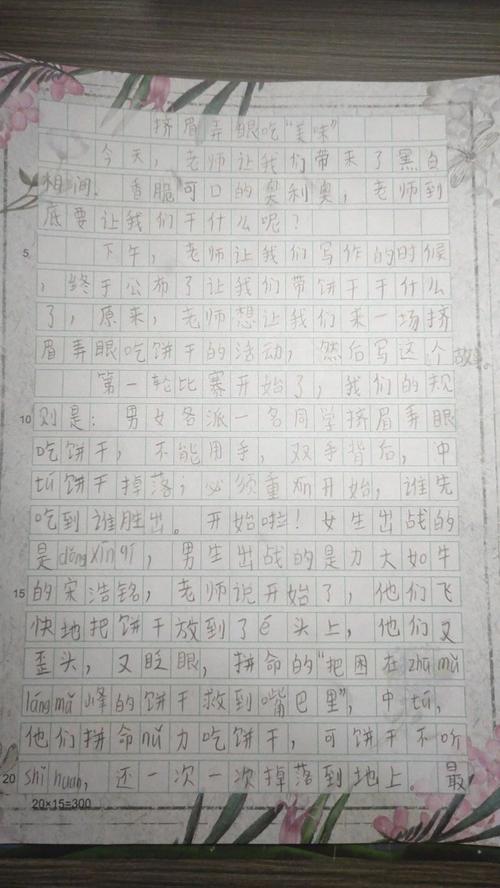 挤眉弄眼吃“美味”
今天，老师让我们带来了黑白
相间、香脆可口的奥利奥，老师到
底要让我们干什么呢？
5 下午，老师让我们写作的时候
，终于公布了让我们带饼干干什么
了，原来，老师想让我们来一场挤
眉弄眼吃饼干的活动，然后写这个故事。
第一轮比赛开始了，我们的规
10 则是：男女各派一名同学挤眉弄眼
吃饼干，不能用手，双手背后，中
tú饼干掉落；必须重新开始，谁先
吃到谁胜出。开始啦！女生出战的
是dǒng xīn，男生出战的是力大如牛
15 的宋浩铭，老师说开始了，他们飞
快地把饼干放到了é头上，他们又
歪头，又眨眼，拼命的“把困在zhū mù
láng mǎ峰的饼干救到嘴巴里”，中tú，
他们拼命nǔ力吃饼干，可饼干不听
20 shǐ huàn，还一次一次掉落到地上。最
20×15=300